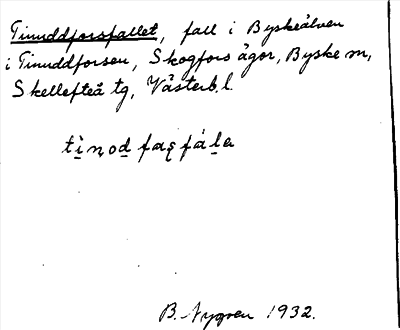 Tinuddforsfallet, fall i Byskeälven
i Tinuddforsen, Skogfors ägor, Byske sn,
Skellefteå tg, Västerb. l.
B. Nygren 1932.